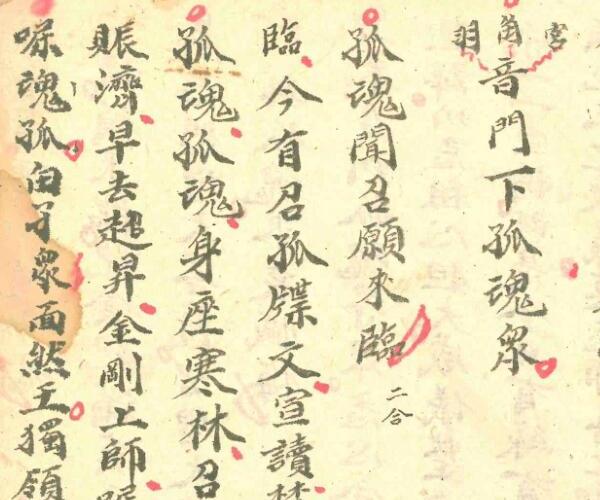 宮角羽音門下孤魂衆
孤魂聞召願來臨二合
臨今有召孤牒文宣讀
孤魂孤魂身座寒林召
賑濟早去超昇金剛上師
魂孤衆面然王獨領